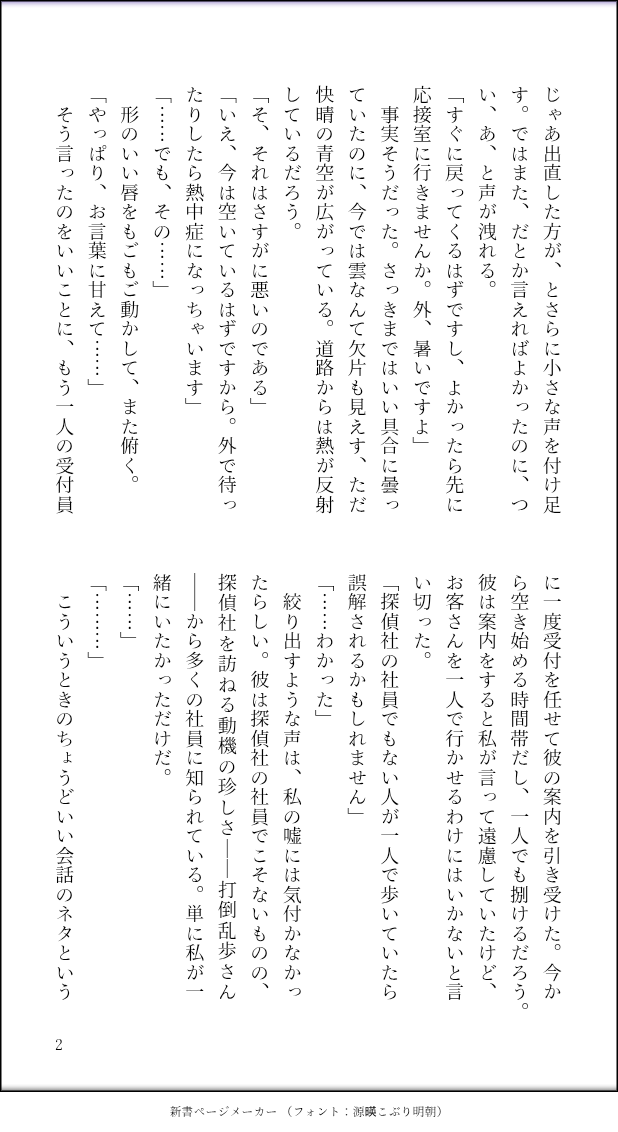 じゃあ出直した方が、とさらに小さな声を付け足
す。ではまた、だとか言えればよかったのに、つ
い、あ、と声が洩れる。
「すぐに戻ってくるはずですし、よかったら先に
応接室に行きませんか。外、暑いですよ」
　事実そうだった。さっきまではいい具合に曇っ
ていたのに、今では雲なんて欠片も見えす、ただ
快晴の青空が広がっている。道路からは熱が反射
しているだろう。
「そ、それはさすがに悪いのである」
「いえ、今は空いているはずですから。外で待っ
たりしたら熱中症になっちゃいます」
「……でも、その……」
　形のいい唇をもごもご動かして、また俯く。
「やっぱり、お言葉に甘えて……」
　そう言ったのをいいことに、もう一人の受付員
に一度受付を任せて彼の案内を引き受けた。今か
ら空き始める時間帯だし、一人でも捌けるだろう。
彼は案内をすると私が言って遠慮していたけど、
お客さんを一人で行かせるわけにはいかないと言
い切った。
「探偵社の社員でもない人が一人で歩いていたら
誤解されるかもしれません」
「……わかった」
　絞り出すような声は、私の嘘には気付かなかっ
たらしい。彼は探偵社の社員でこそないものの、
探偵社を訪ねる動機の珍しさ――打倒乱歩さん
――から多くの社員に知られている。単に私が一
緒にいたかっただけだ。
「……」
「………」
　こういうときのちょうどいい会話のネタという
2
新書ページメーカー（フォント：源暎こぶり明朝）